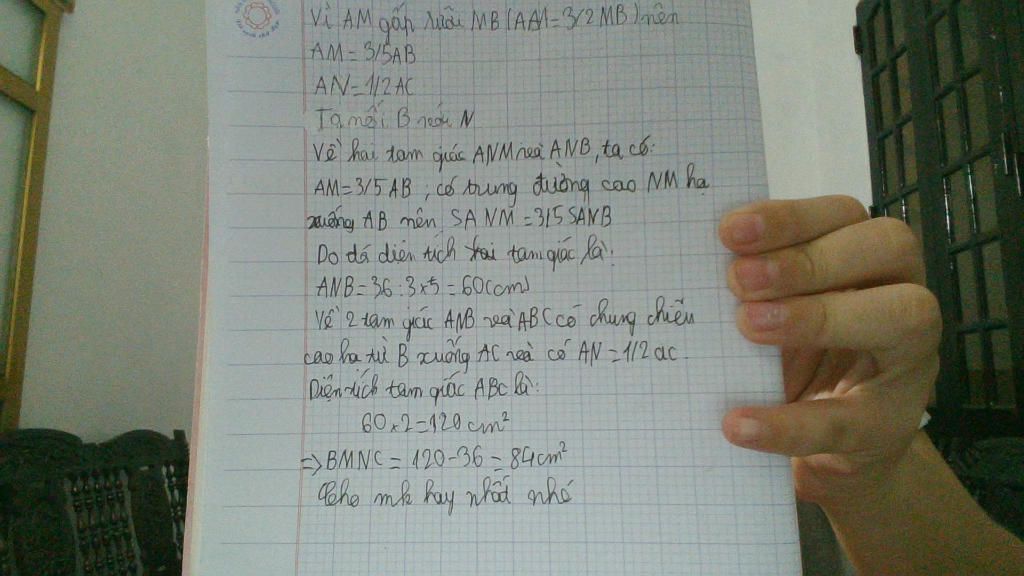 Vì AM gấp rưỡi MB (AM=3/2MB) nên
AM=3/5AB
AN=1/2AC
Ta nối B với N
Về hai tam giác ANM và ANB, ta có:
AM=3/5AB; có trung đường cao NM hạ
xuống AB nên SANM=3/5SANB
Do đó diện tích tam giác là:
ANB=36:3×5=60(cm)
Về 2 tam giác ANB và ABC có chung chiều
cao hạ từ B xuống AC và có AN=1/2ac.
Diện tích tam giác ABC là:
60×2=120cm²
=>BMNC=120-36=84cm²
Cho mk hay nhất nhé